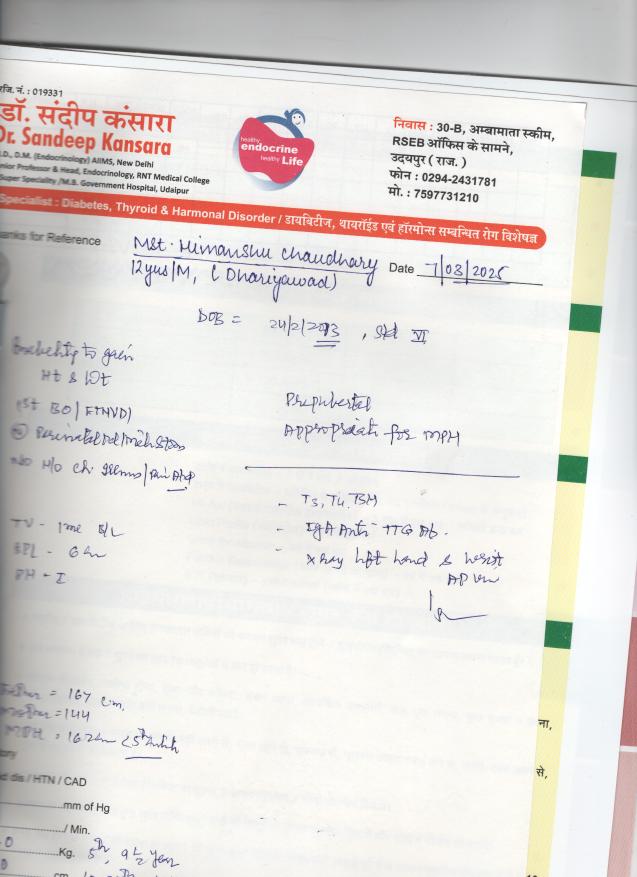 रजि. नं. : 019331
डॉ. संदीप कंसारा
Dr. Sandeep Kansara
D., D.M. (Endocrinology) AIIMS, New Delhi
nior Professor & Head, Endocrinology, RNT Medical College
Super Speciality /M.B. Government Hospital, Udaipur
healthy
endocrine
healthy Life
निवास : 30-B, अम्बामाता स्कीम,
RSEB ऑफिस के सामने,
उदयपुर ( राज. )
फोन : 0294-2431781
मो. : 7597731210
Specialist : Diabetes, Thyroid & Harmonal Disorder / डायबिटीज, थायरॉईड एवं हॉरमोन्स सम्बन्धित रोग विशेषज्ञ
anks for Reference Mst. Himanshu Chaudhary
12yrs/M, (Dhariyawad) Date 7/03/2025
DOB = 24/2/2013, Std VI
to gain
Ht & Wt
1st BO/FTNVD
NO H/O ch. illness/
Prepubertal
Appropriate for MPH
- T3, T4, TSH
- IgA Anti-TTG Ab.
- Xray left hand & wrist
AP view
TV - 1ml B/L
SPL - 6cm
PH - I
Father = 167 cm.
Mother = 144
MPH = 162cm <5th
ory
d dis / HTN / CAD
mm of Hg
/ Min.
Kg. 5th, 9½ year
cm
ना,
से,